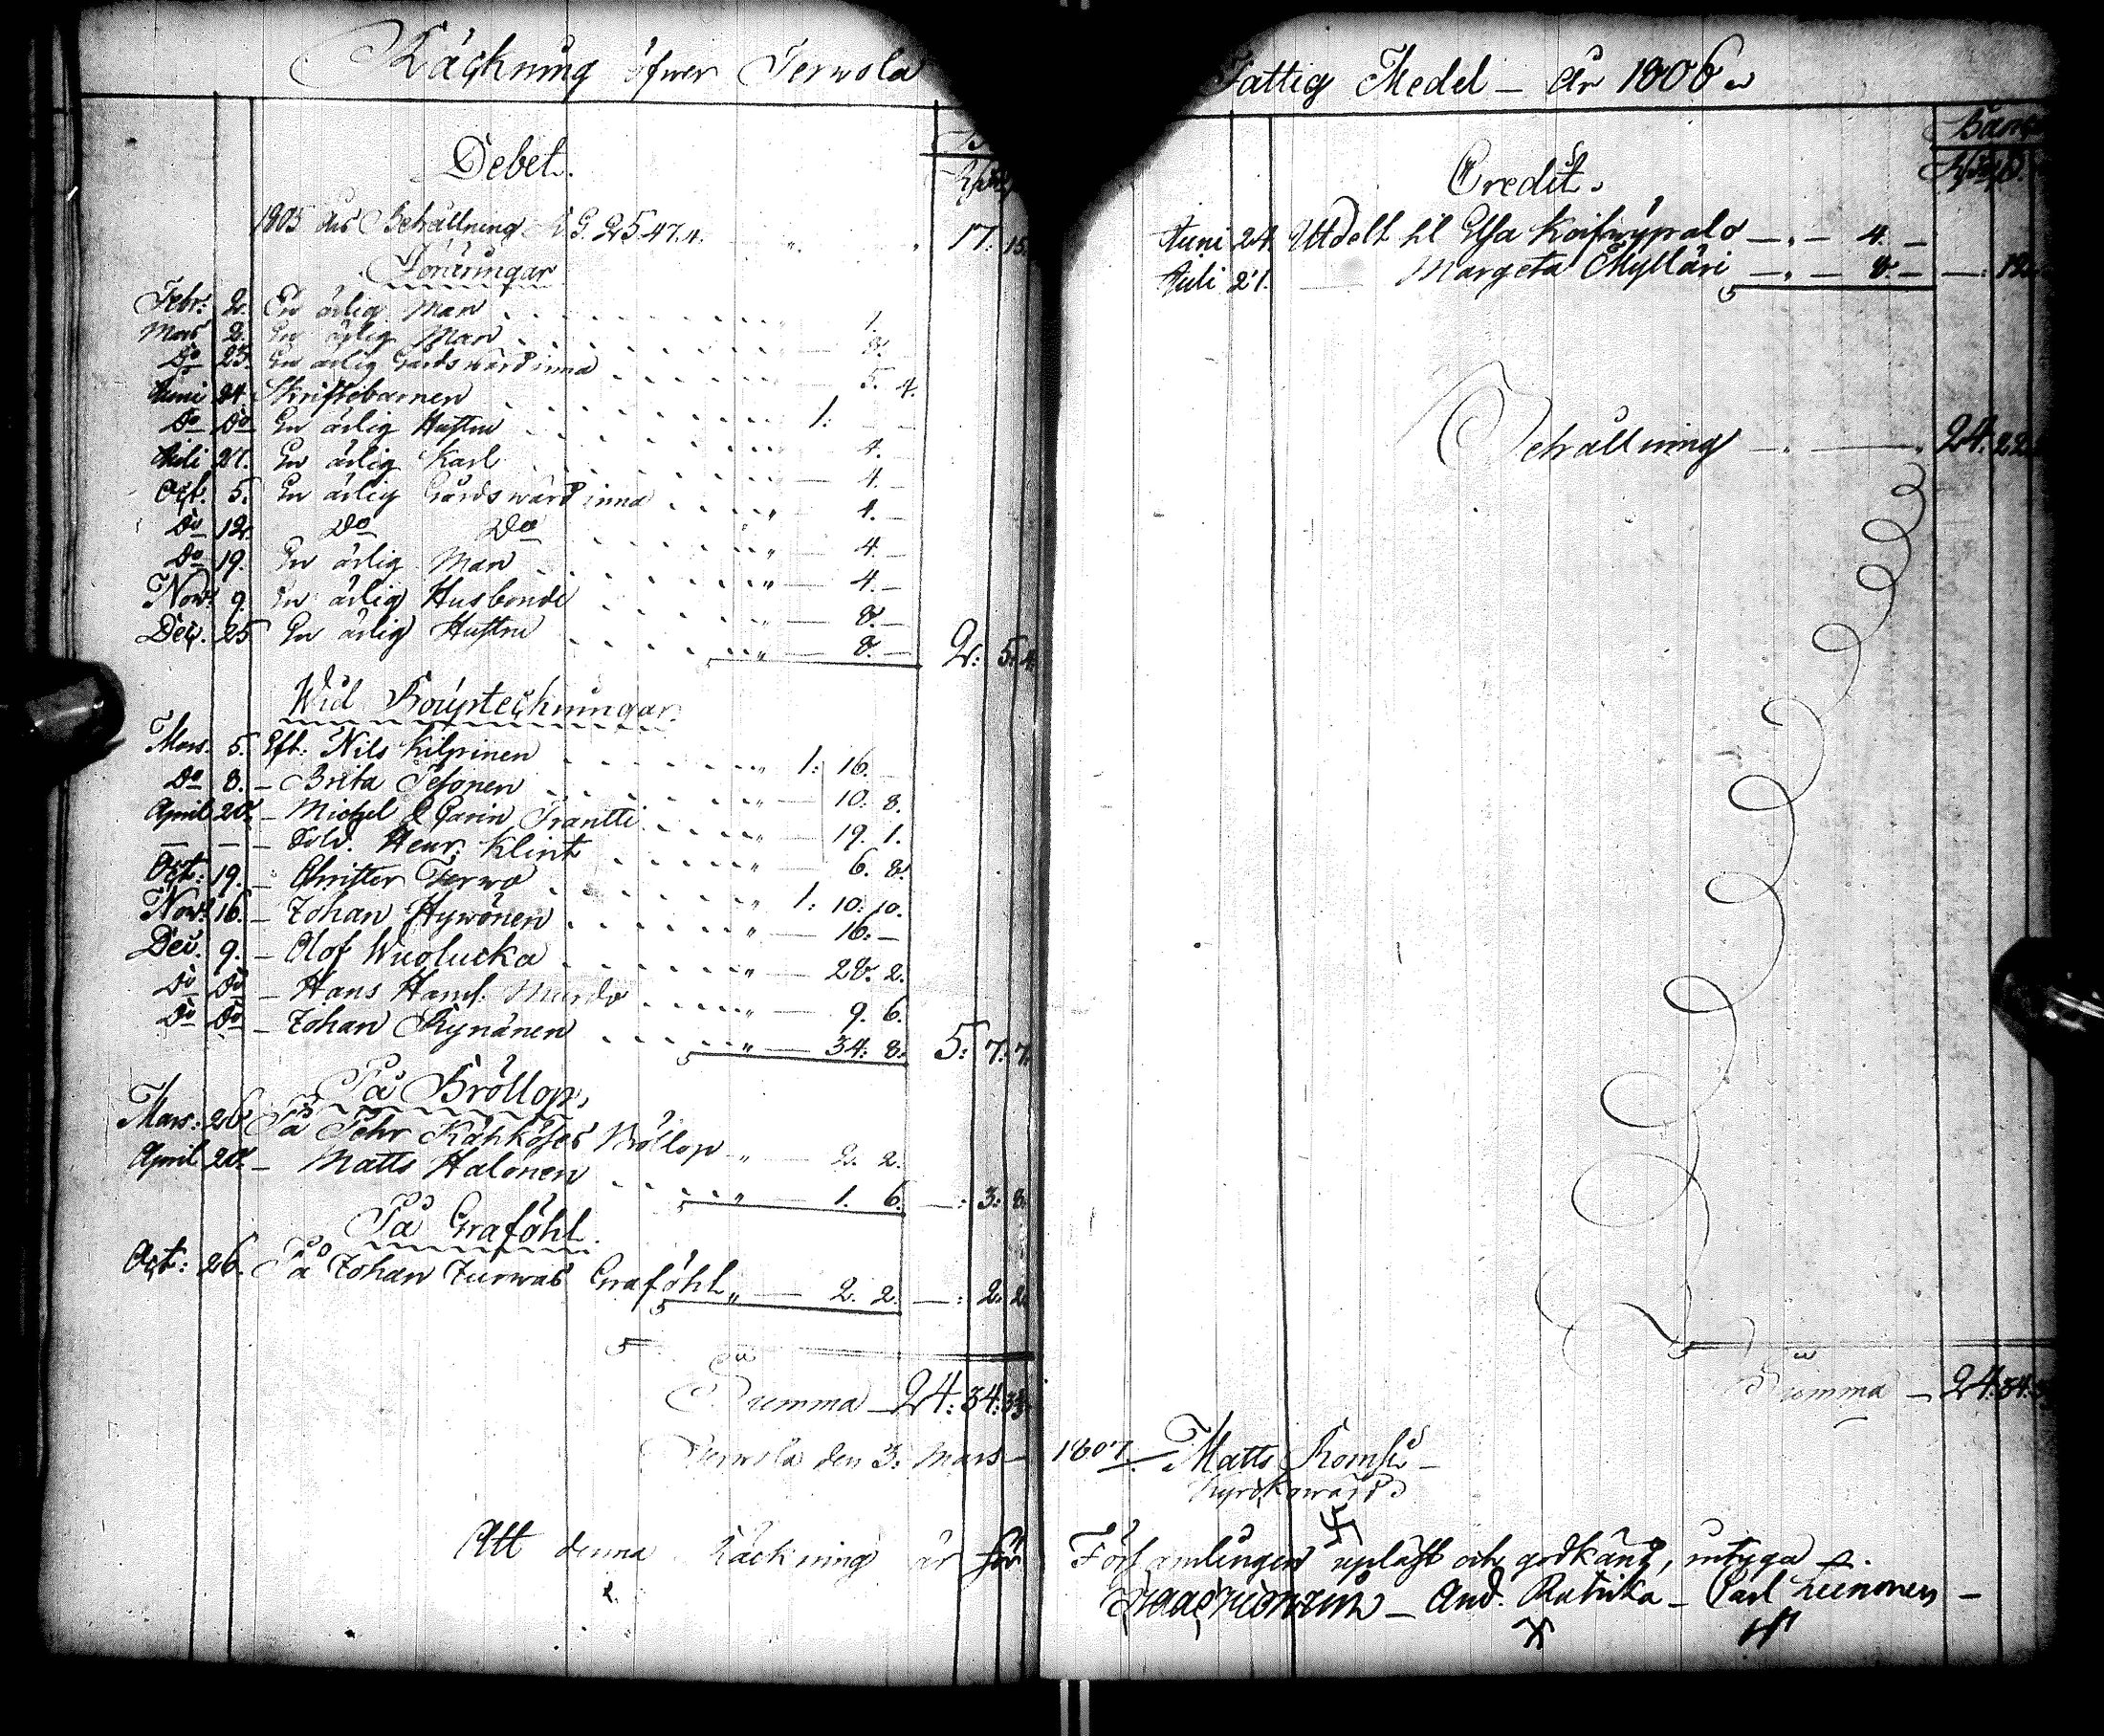 Räckning öfwer Terwola Fattig Medel – År 1806
Debet.
1805 års Behållning 17. 15.
Föräringar
Febr: 2. En ärlig Man 1.
Mars 2. En ärlig Man 8.
Do 23. En ärlig Gårdswärdinna 5. 4.
Juni 24. Skriftebarnen 1: – –
Do Do En ärlig Hustru 4. –
Juli 27. En ärlig Karl 4. –
Oct. 5. En ärlig Gårdswärdinna 4. –
Do 12. Do Do 4. –
Do 19. En ärlig Man 4. –
Nowr 9. En ärlig Husbonde 8. –
Dec. 25 En ärlig Hustru 8. – 2: 5. 4.
Wid Bouptechningar.
Mars. 5. Eft: Nils Kilpinen 1: 16. –
Do 8. – Brita Pesonen – 10. 8.
April 20. – Michel & Carin Frantti – 19. 1.
– – – Sold. Henr: Klint – 6. 8.
Oct: 19. – Christer Terwo 1: 10: 10.
Nowr 16. – Johan Hywönen – 16. –
Dec. 9. – Olof Wuolucka – 28. 2.
Do Do – Hans Hansf. – 9. 6.
Do Do – Johan Rynänen – 34. 8. 5: 7: 7.
På Bröllop,
Mars: 26 På Pehr Kähköses Bröllop – 2. 2.
April 20. – Matts Halonen – 1. 6. –: 3: 8.
På Graföhl.
Oct: 26. På Johan Jurwas Graföhl – 2. 2. –: 2. 2.
Summa – 24: 34:
Terwola den 3. Mars –
Att denna Räckning är för
Credit.
Juni 24. Utdelt til Elsa – 4. –
Juli 27. Margeta Mylläri – 8. – –: 12.
Behållning – 24. 22.
Summa – 24: 34:
1807. Matts Romsi –
Kyrckowärd
Församlingen upläst och godkänd, intyga
And. Ruhka – Carl Leenonen –